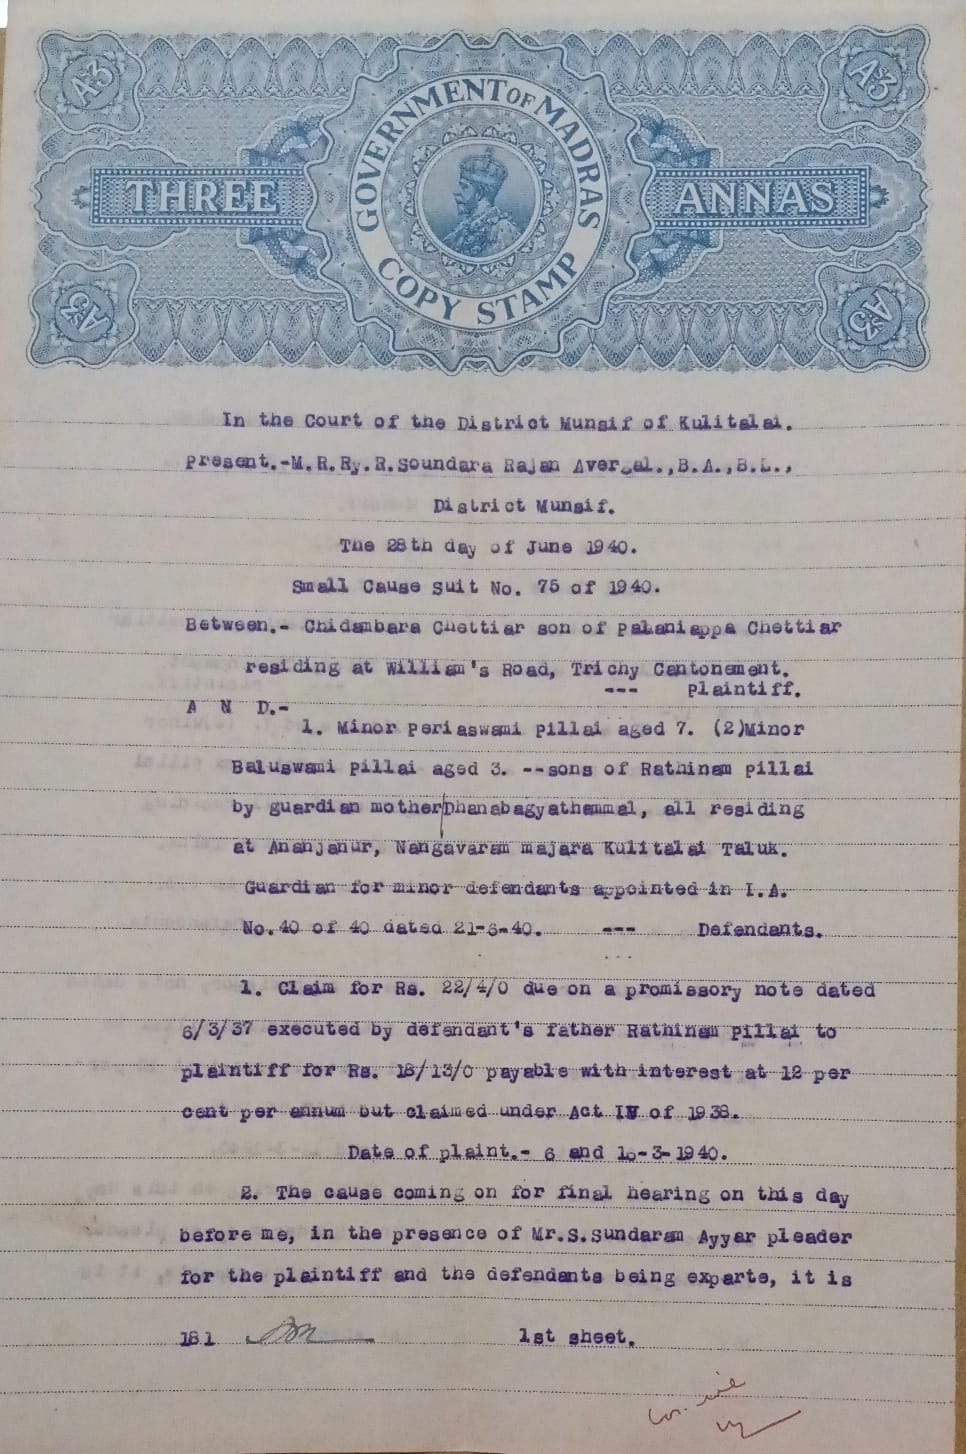 As3
As3
GOVERNMENT OF MADRAS
THREE
ANNAS
COPY STAMP
As3
As3
In the Court of the District Munsif of Kulitalai.
present.-M.R.Ry.R.Soundara Rajan Avergal.,B.A.,B.L.,
District Munsif.
The 28th day of June 1940.
Small Cause Suit No. 75 of 1940.
Between.- Chidambara Chettiar son of Palaniappa Chettiar
residing at William's Road, Trichy Cantonement.
--- plaintiff.
A N D.-
1. Minor periaswami pillai aged 7. (2)Minor
Baluswami pillai aged 3. --sons of Rathinam pillai
by guardian mother Dhanabagyathammal, all residing
at Ananjanur, Nangavaram majara Kulitalai Taluk.
Guardian for minor defendants appointed in I.A.
No.40 of 40 dated 21-6-40. --- Defendants.
...
1. Claim for Rs. 22/4/0 due on a promissory note dated
6/3/37 executed by defendant's father Rathinam pillai to
plaintiff for Rs. 18/13/0 payable with interest at 12 per
cent per annum but claimed under Act IV of 1938.
Date of plaint.- 6 and -3-1940.
2. The cause coming on for final hearing on this day
before me, in the presence of Mr.S.Sundaram Ayyar pleader
for the plaintiff and the defendants being exparte, it is
181 1st sheet.